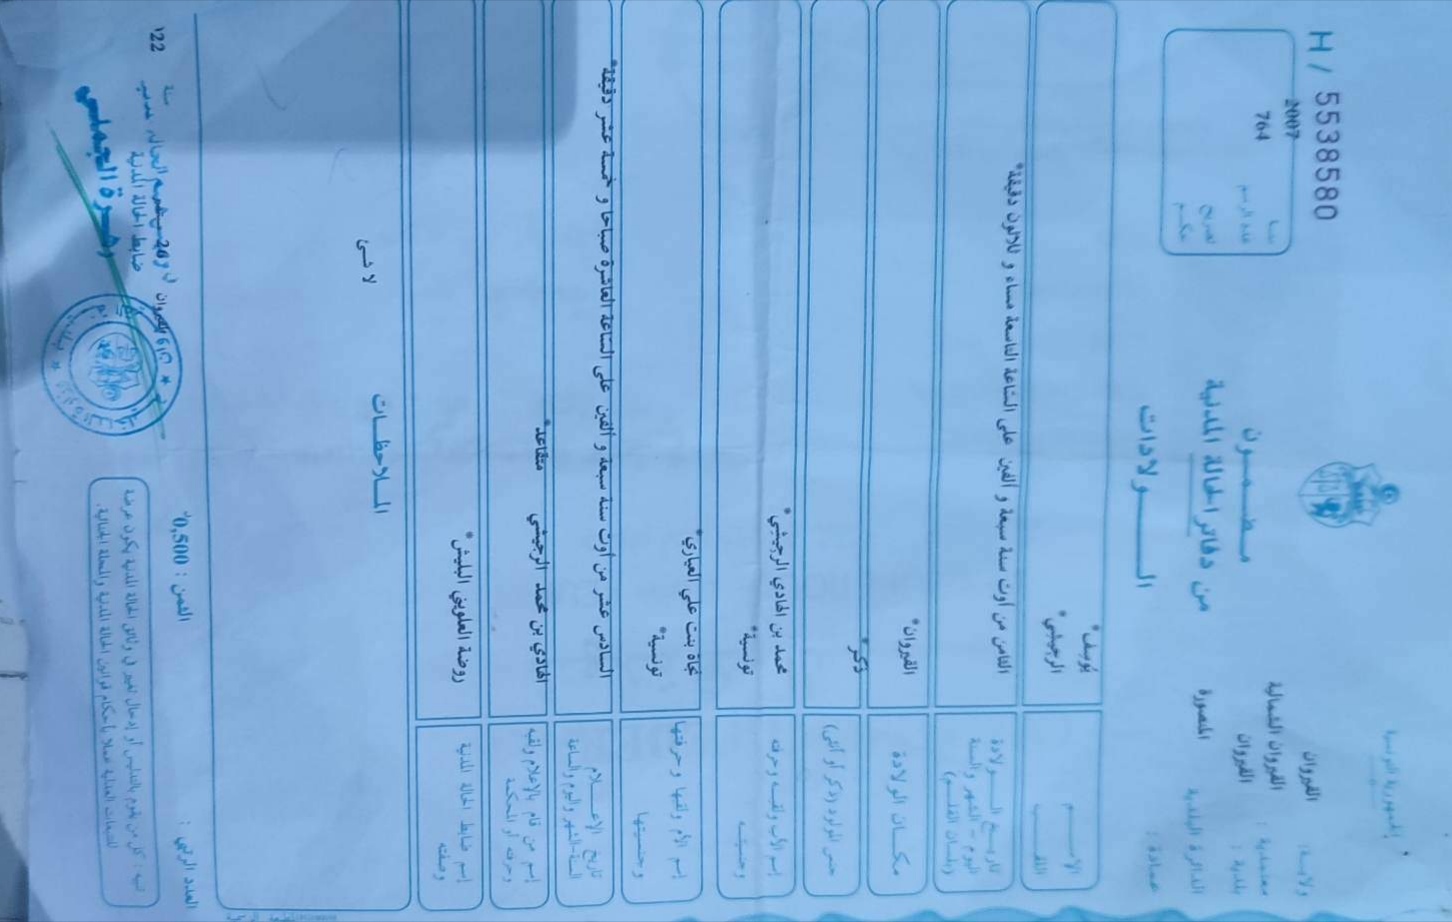 الجمهورية التونسية
ولاية : القيروان
معتمدية : القيروان الشمالية
بلدية : القيروان
الدائرة البلدية المنصورة
عمادة :
H / 5538580
سنة 2007
عدد الرسم 764
تصريح
حكم
مضمون
من دفاتر الحالة المدنية
الولادات
الاسم يوسف*
اللقب الرحيشي*
تاريخ الولادة
اليوم - الشهر والسنة
(بلسان القلم)
الثامن من أوت سنة سبعة و ألفين على الساعة التاسعة مساء و ثلاثون دقيقة*
مكان الولادة القيروان*
جنس المولود (ذكر أو أنثى) ذكر*
إسم الأب ولقبه وحرفته محمد بن الهادي الرحيشي*
وجنسيته تونسية*
إسم الأم ولقبها وحرفتها نجاة بنت علي العياري*
وجنسيتها تونسية*
تاريخ الإعلام
السنة-الشهر واليوم والساعة
السادس عشر من أوت سنة سبعة و ألفين على الساعة العاشرة صباحا و خمسة عشر دقيقة*
إسم من قام بالإعلام ولقبه
وحرفته أو المحكمة
الهادي بن محمد الرحيشي متقاعد*
إسم ضابط الحالة المدنية
وصفته
روضة العلويني البليش*
الملاحظات
لا شئ
العدد الرتبي :
الثمن : 0,500
القيروان في
سنة
ضابط الحالة المدنية
تنبيه كل من يقوم بالتدليس أو إدخال تغيير في وثائق الحالة المدنية يكون عرضة
للتبعات العدلية عملا بأحكام قوانين الحالة المدنية والمجلة الجنائية.